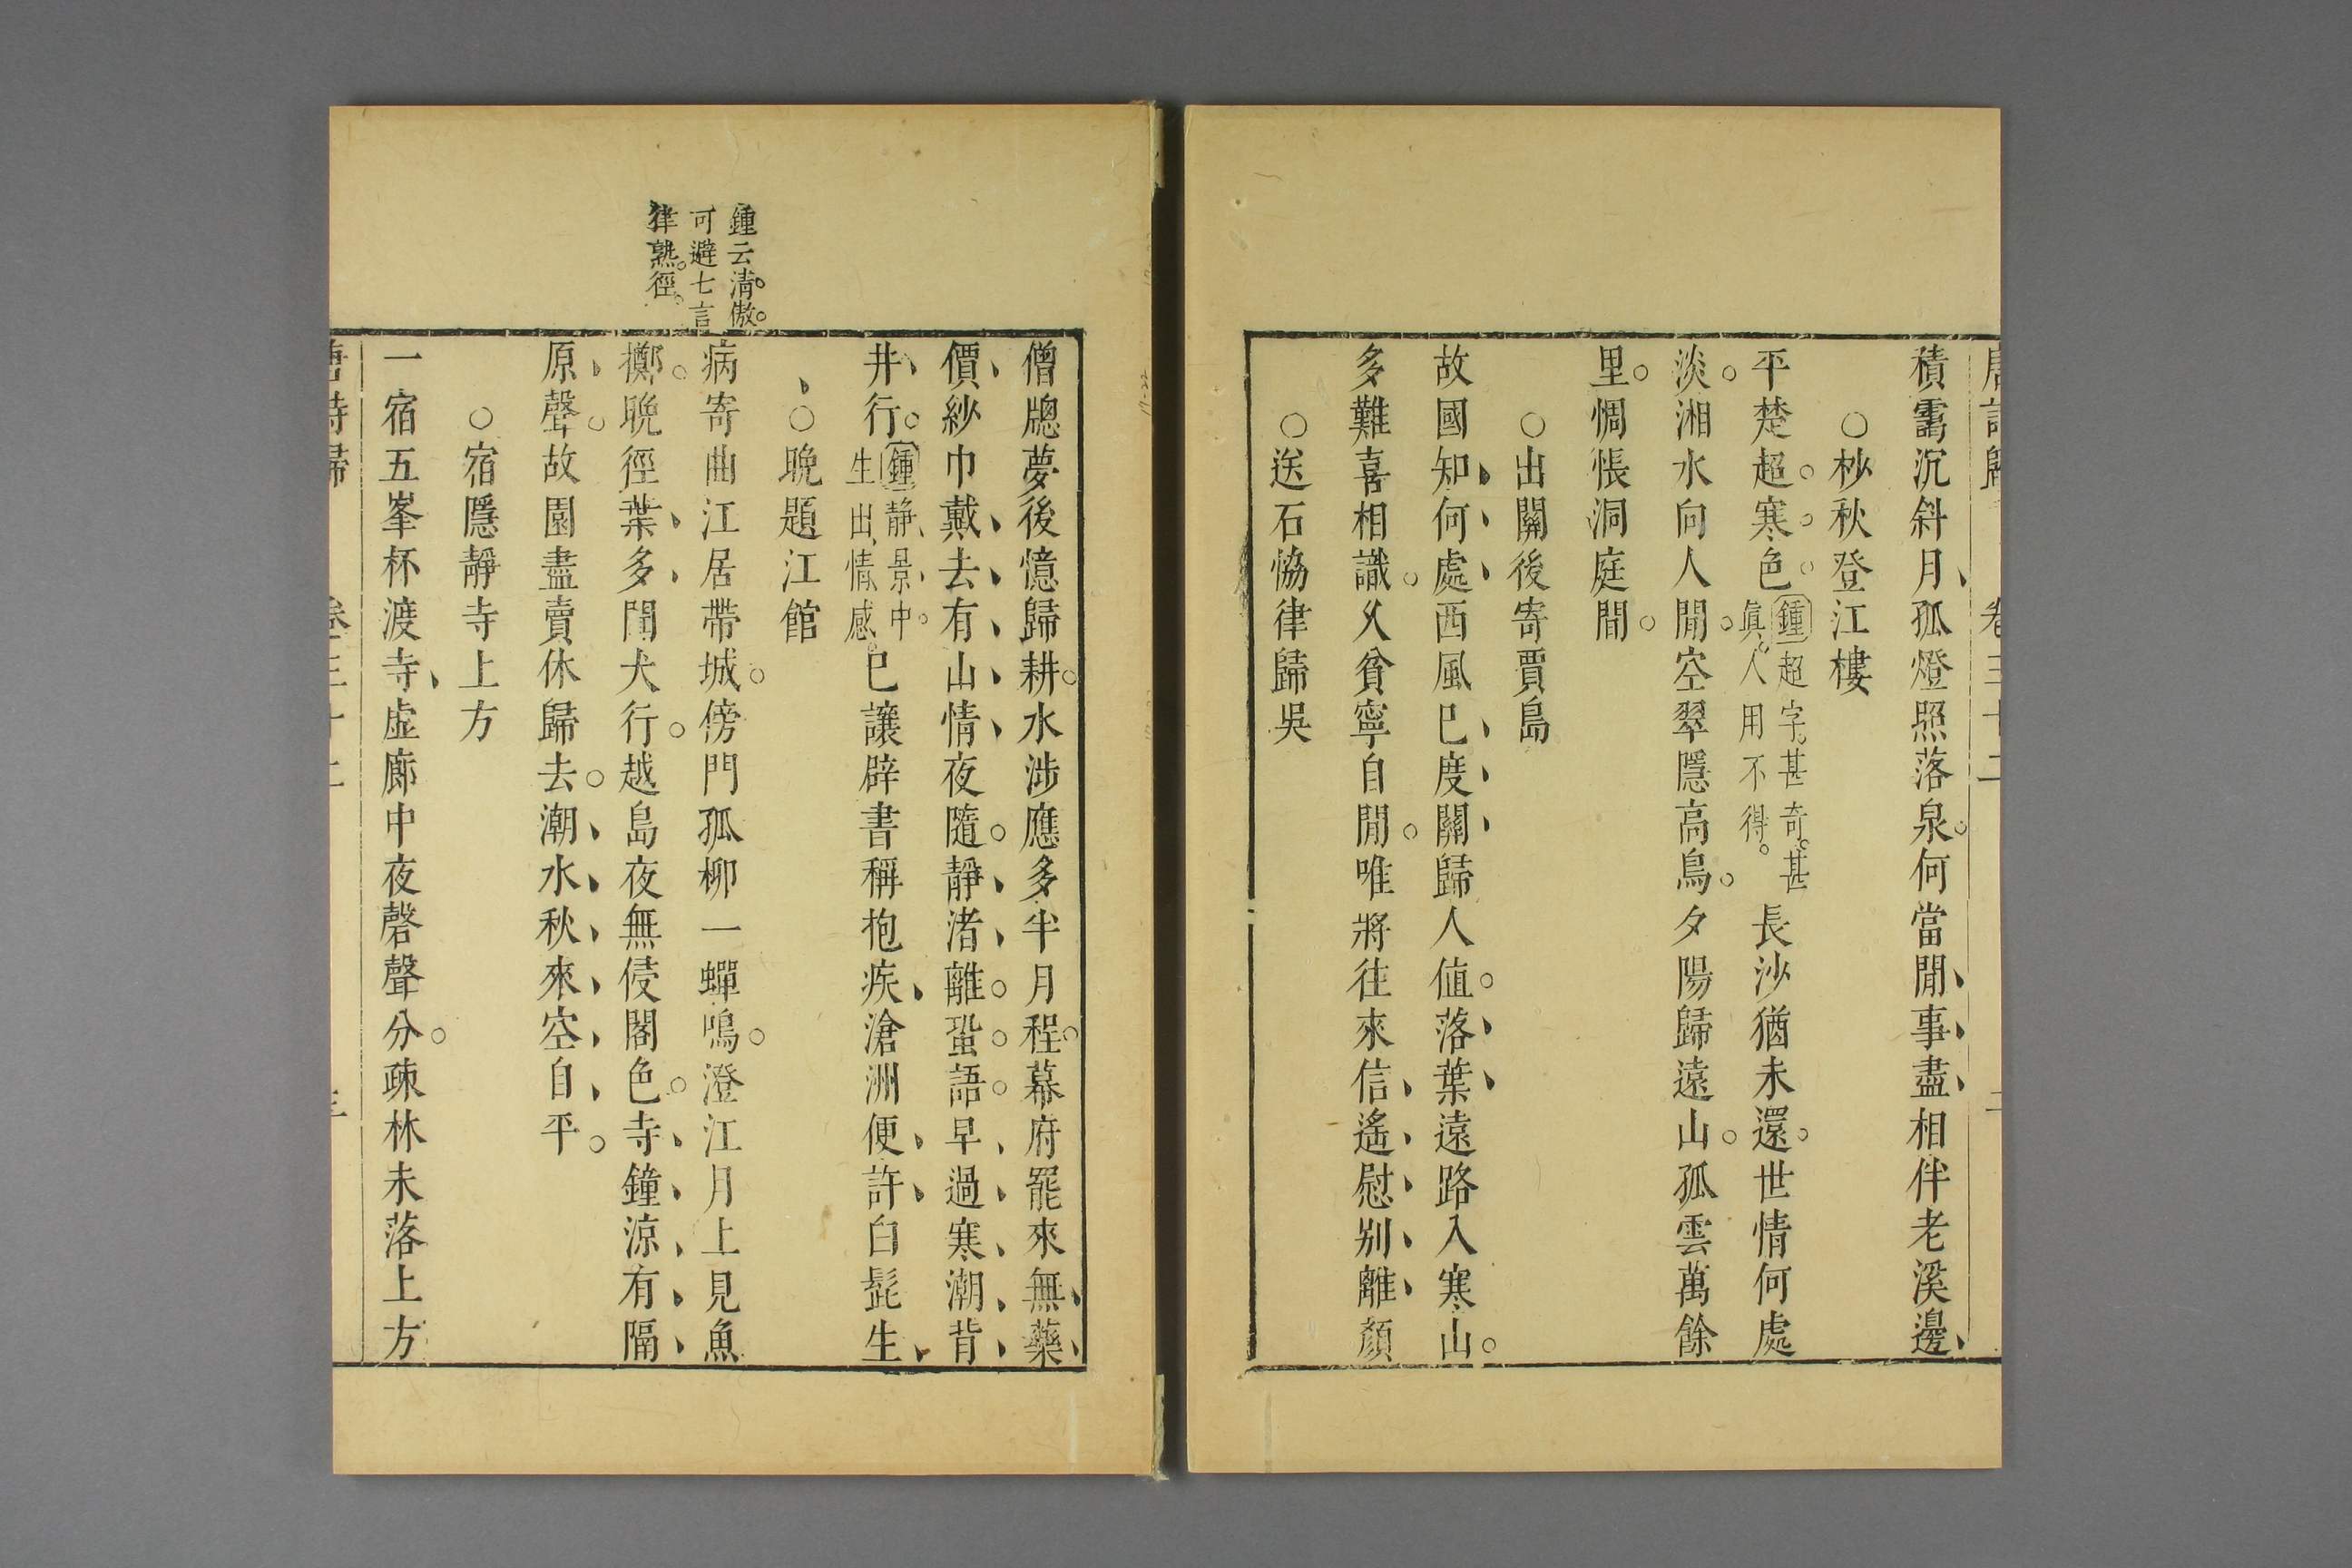 唐詩歸 卷三十二 二
積靄沉斜月孤燈照落泉何當閒事盡相伴老溪邊
○杪秋登江樓
平楚超寒色鍾超字甚奇甚眞人用不得長沙猶未還世情何處
淡湘水向人閒空翠隱高鳥夕陽歸遠山孤雲萬餘
里惆悵洞庭間
○出關後寄賈島
故國知何處西風已度關歸人值落葉遠路入寒山
多難喜相識久貧寧自閒唯將往來信遙慰別離顏
○送石恊律歸吳
僧牕夢後憶歸耕水涉應多半月程幕府罷來無藥
價紗巾戴去有山情夜隨靜渚離蛩語早過寒潮背
井行鍾靜景中生出情感已讓辟書稱抱疾滄洲便許白髭生
○晚題江館
鍾云清傲
可避七言
律熟徑
病寄曲江居帶城傍門孤柳一蟬鳴澄江月上見魚
擲晚徑葉多聞犬行越島夜無侵閣色寺鐘涼有隔
原聲故園盡賣休歸去潮水秋來空自平
○宿隱靜寺上方
一宿五峯杯渡寺虛廊中夜磬聲分疎林未落上方
唐詩歸 卷三十二 三